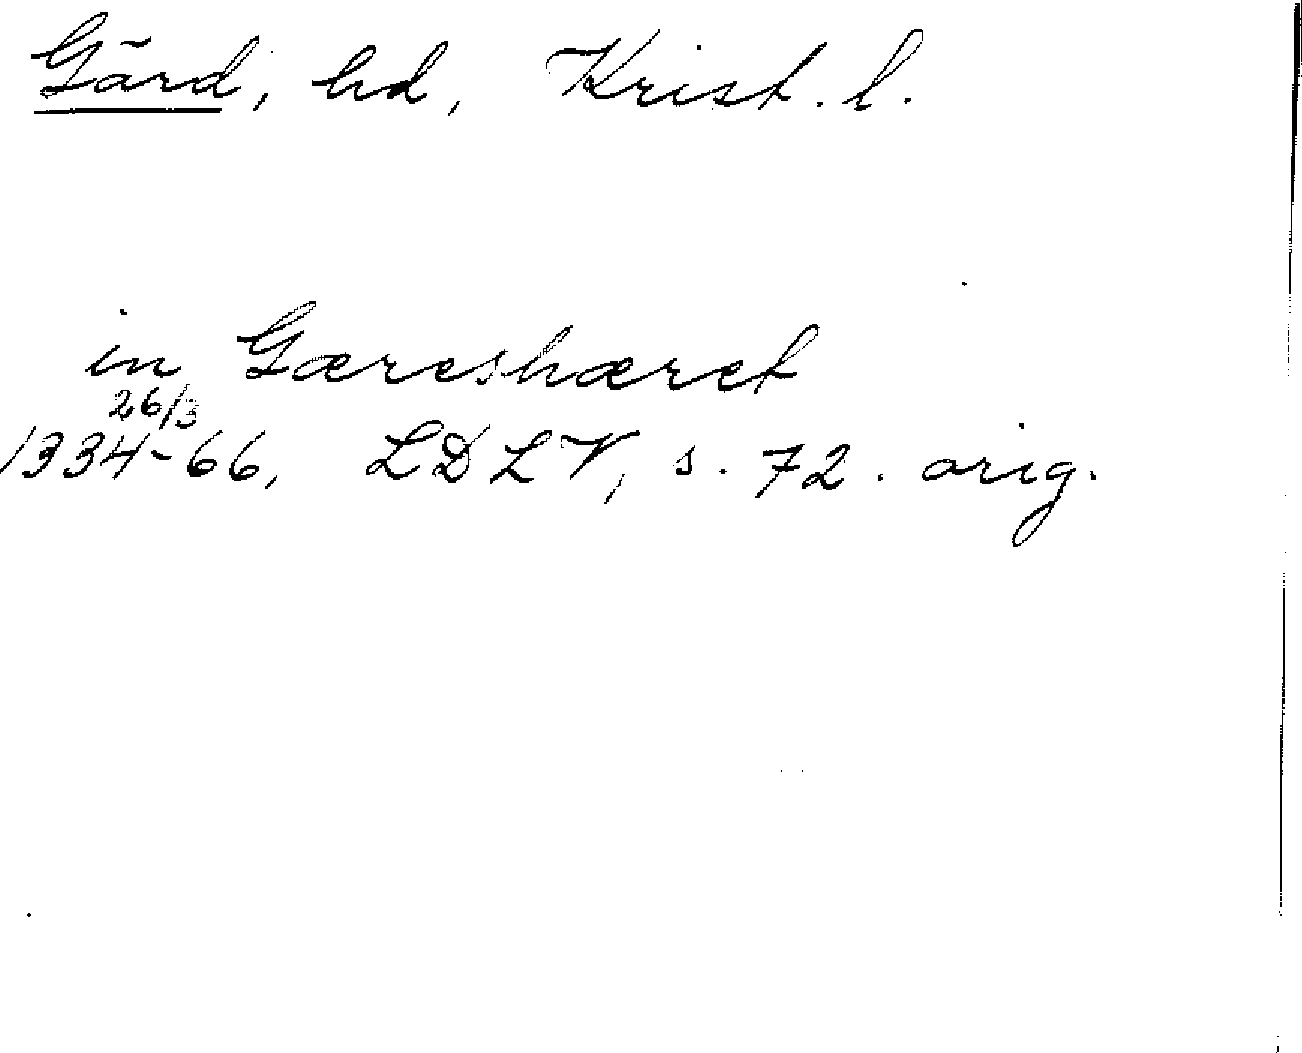 Gärd, hd, Krist. l.
in Gæreshæret
26/3
1334-66, LDLV, s. 72. orig.